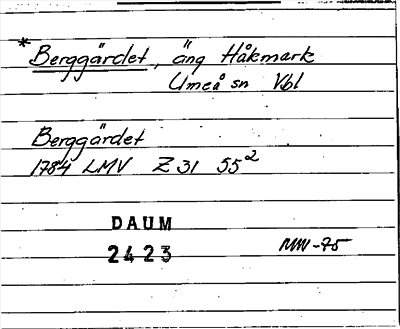 *Berggärdet, äng Håkmark
Umeå sn Vbl
Berggärdet
1784 LMV Z 31 55²
DAUM
2423
MW-75